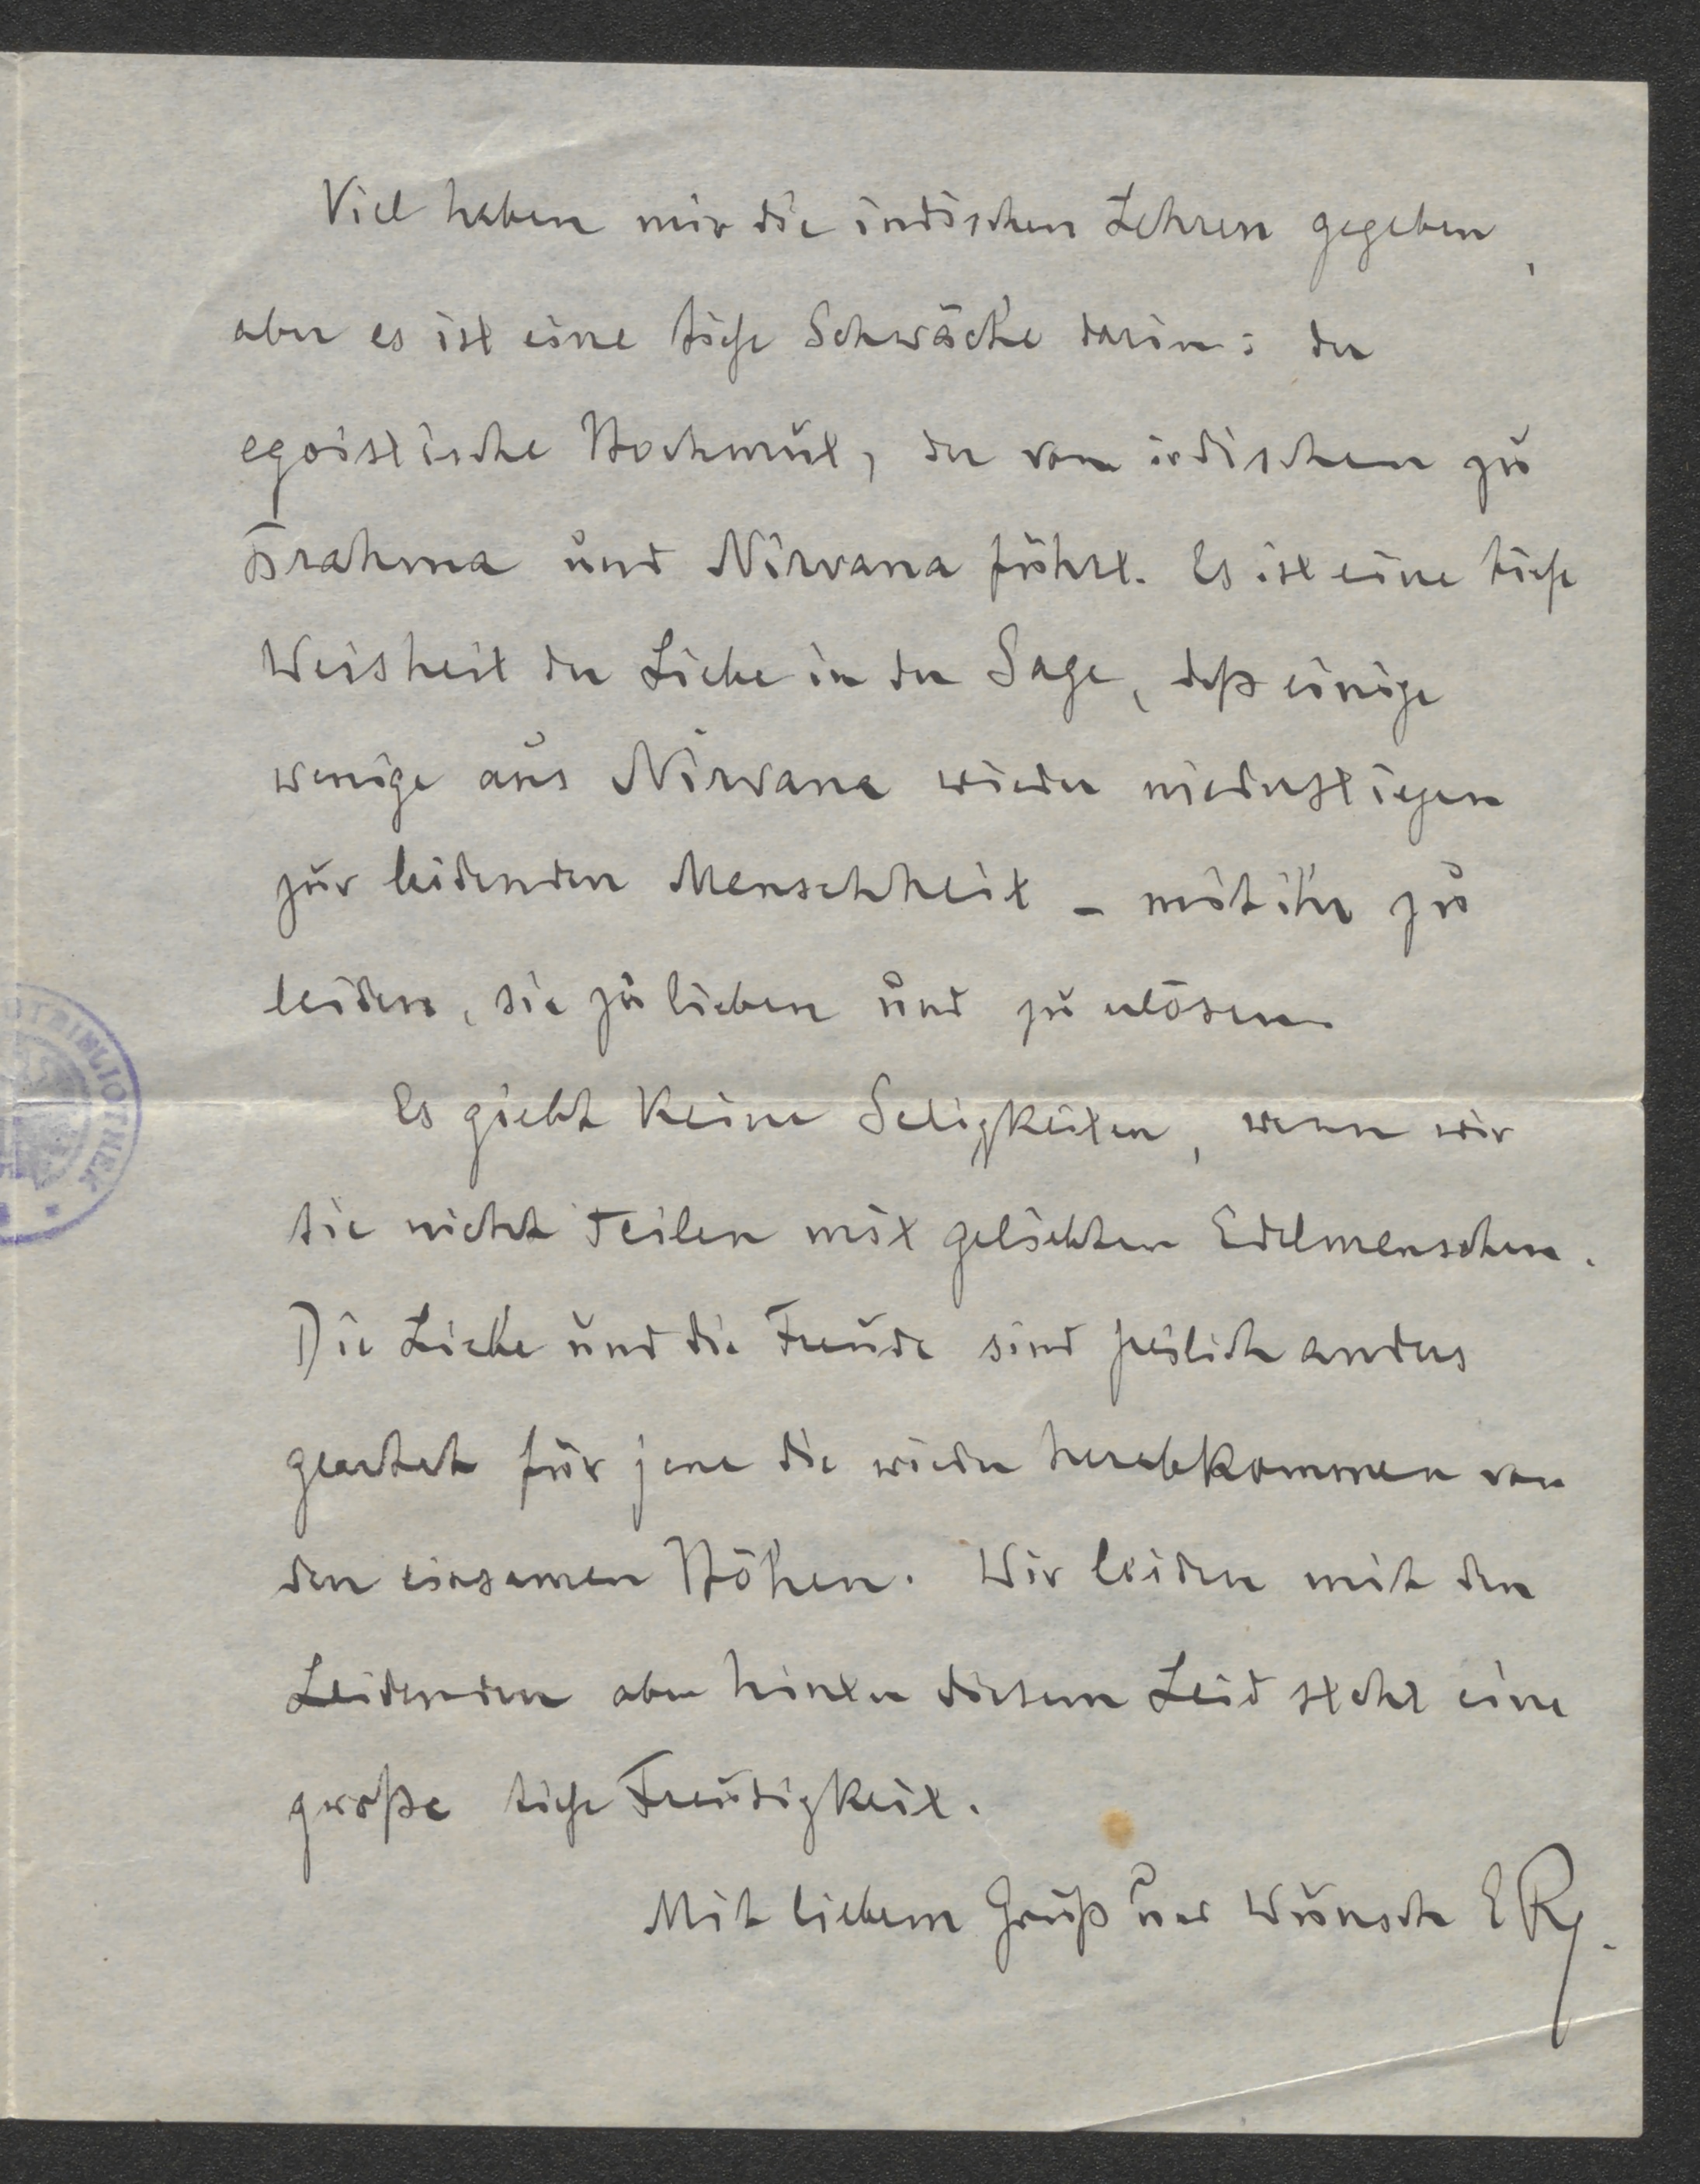 Viel haben mir die indischen Lehren gegeben,
aber es ist eine tiefe Schwäche darin: der
egoistische Hochmut, der vom irdischen zu
Brahma und Nirvana führt. Es ist eine tiefe
Weisheit der Liebe in der Sage, daß einige
wenige aus Nirvana wieder niederstiegen
zur leidenden Menschheit – mit ihr zu
leiden, sie zu lieben und zu erlösen.
Es giebt keine Seligkeiten, wenn wir
sie nicht teilen mit geliebten Edelmenschen.
Die Liebe und die Freude sind freilich anders
geartet für jene die wieder herabkommen von
den einsamen Höhen. Wir leiden mit den
Leidenden aber hinter diesem Leid steht eine
große tiefe Freudigkeit.
Mit liebem Gruß und Wunsch ERg.
BIBLIOTHEK